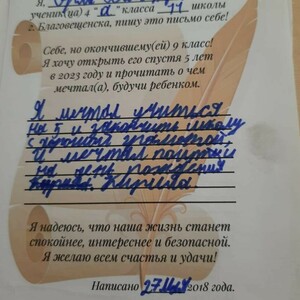 Я,
ученик(ца) 4 "а" класса 11 школы
г. Благовещенска, пишу это письмо себе!
Себе, но окончившему(ей) 9 класс!
Я хочу открыть его спустя 5 лет
в 2023 году и прочитать о чем
мечтал(а), будучи ребенком.
Я мечтал учиться
на 5 и закончить школу
с хорошей грамотой.
И мечтал пойти
на день рождения
Кирила
Я надеюсь, что наша жизнь станет
спокойнее, интереснее и безопасной.
Я желаю всем счастья и удачи!
Написано 27 Мая 2018 года.